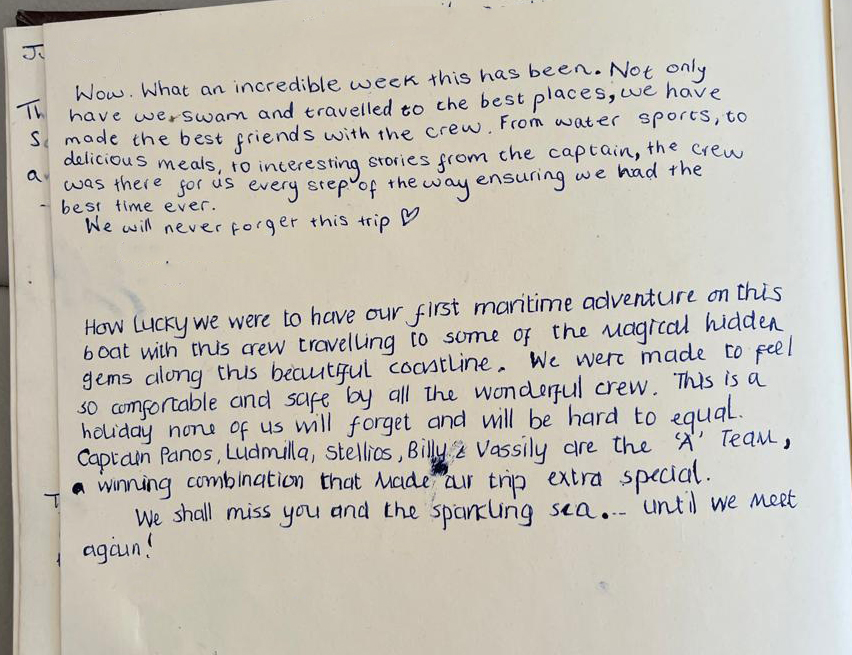 Wow. What an incredible week this has been. Not only
have we swam and travelled to the best places, we have
made the best friends with the crew. From water sports, to
delicious meals, to interesting stories from the captain, the crew
was there for us every step of the way ensuring we had the
best time ever.
We will never forget this trip ♡
How lucky we were to have our first maritime adventure on this
boat with this crew travelling to some of the magical hidden
gems along this beautiful coastline. We were made to feel
so comfortable and safe by all the wonderful crew. This is a
holiday none of us will forget and will be hard to equal.
Captain Panos, Ludmilla, Stellios, Billy & Vassily are the 'A' Team,
a winning combination that made our trip extra special.
We shall miss you and the sparkling sea... until we meet
again!